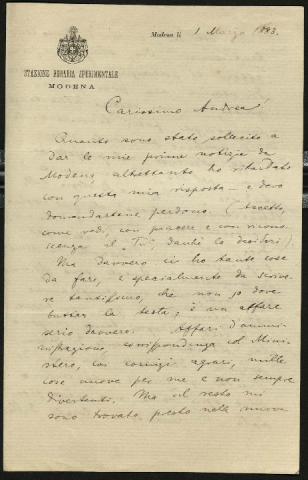 Modena li 1 Marzo 1883.
STAZIONE AGRARIA SPERIMENTALE
MODENA
Carissimo Andrea
Quanto sono stato sollecito a
dar le mie prime notizie da
Modena, altrettanto ho ritardato
con questa mia risposta – e devo
domandartene perdono. (Accetto,
come vedi, con piacere e con ricono
scenza il "Tu", che lo desideri).
Ma davvero io ho tante cose
da fare, e specialmente da scrive
re tantissimo, che non so dove
buttar la testa; è un affare
serio davvero. Affari d'ammi
nistrazione, corrispondenza col Mini
stero, coi comizi agrari, mille
cose nuove per me e non sempre
divertenti. Ma del resto mi
sono trovato presto nella nuova